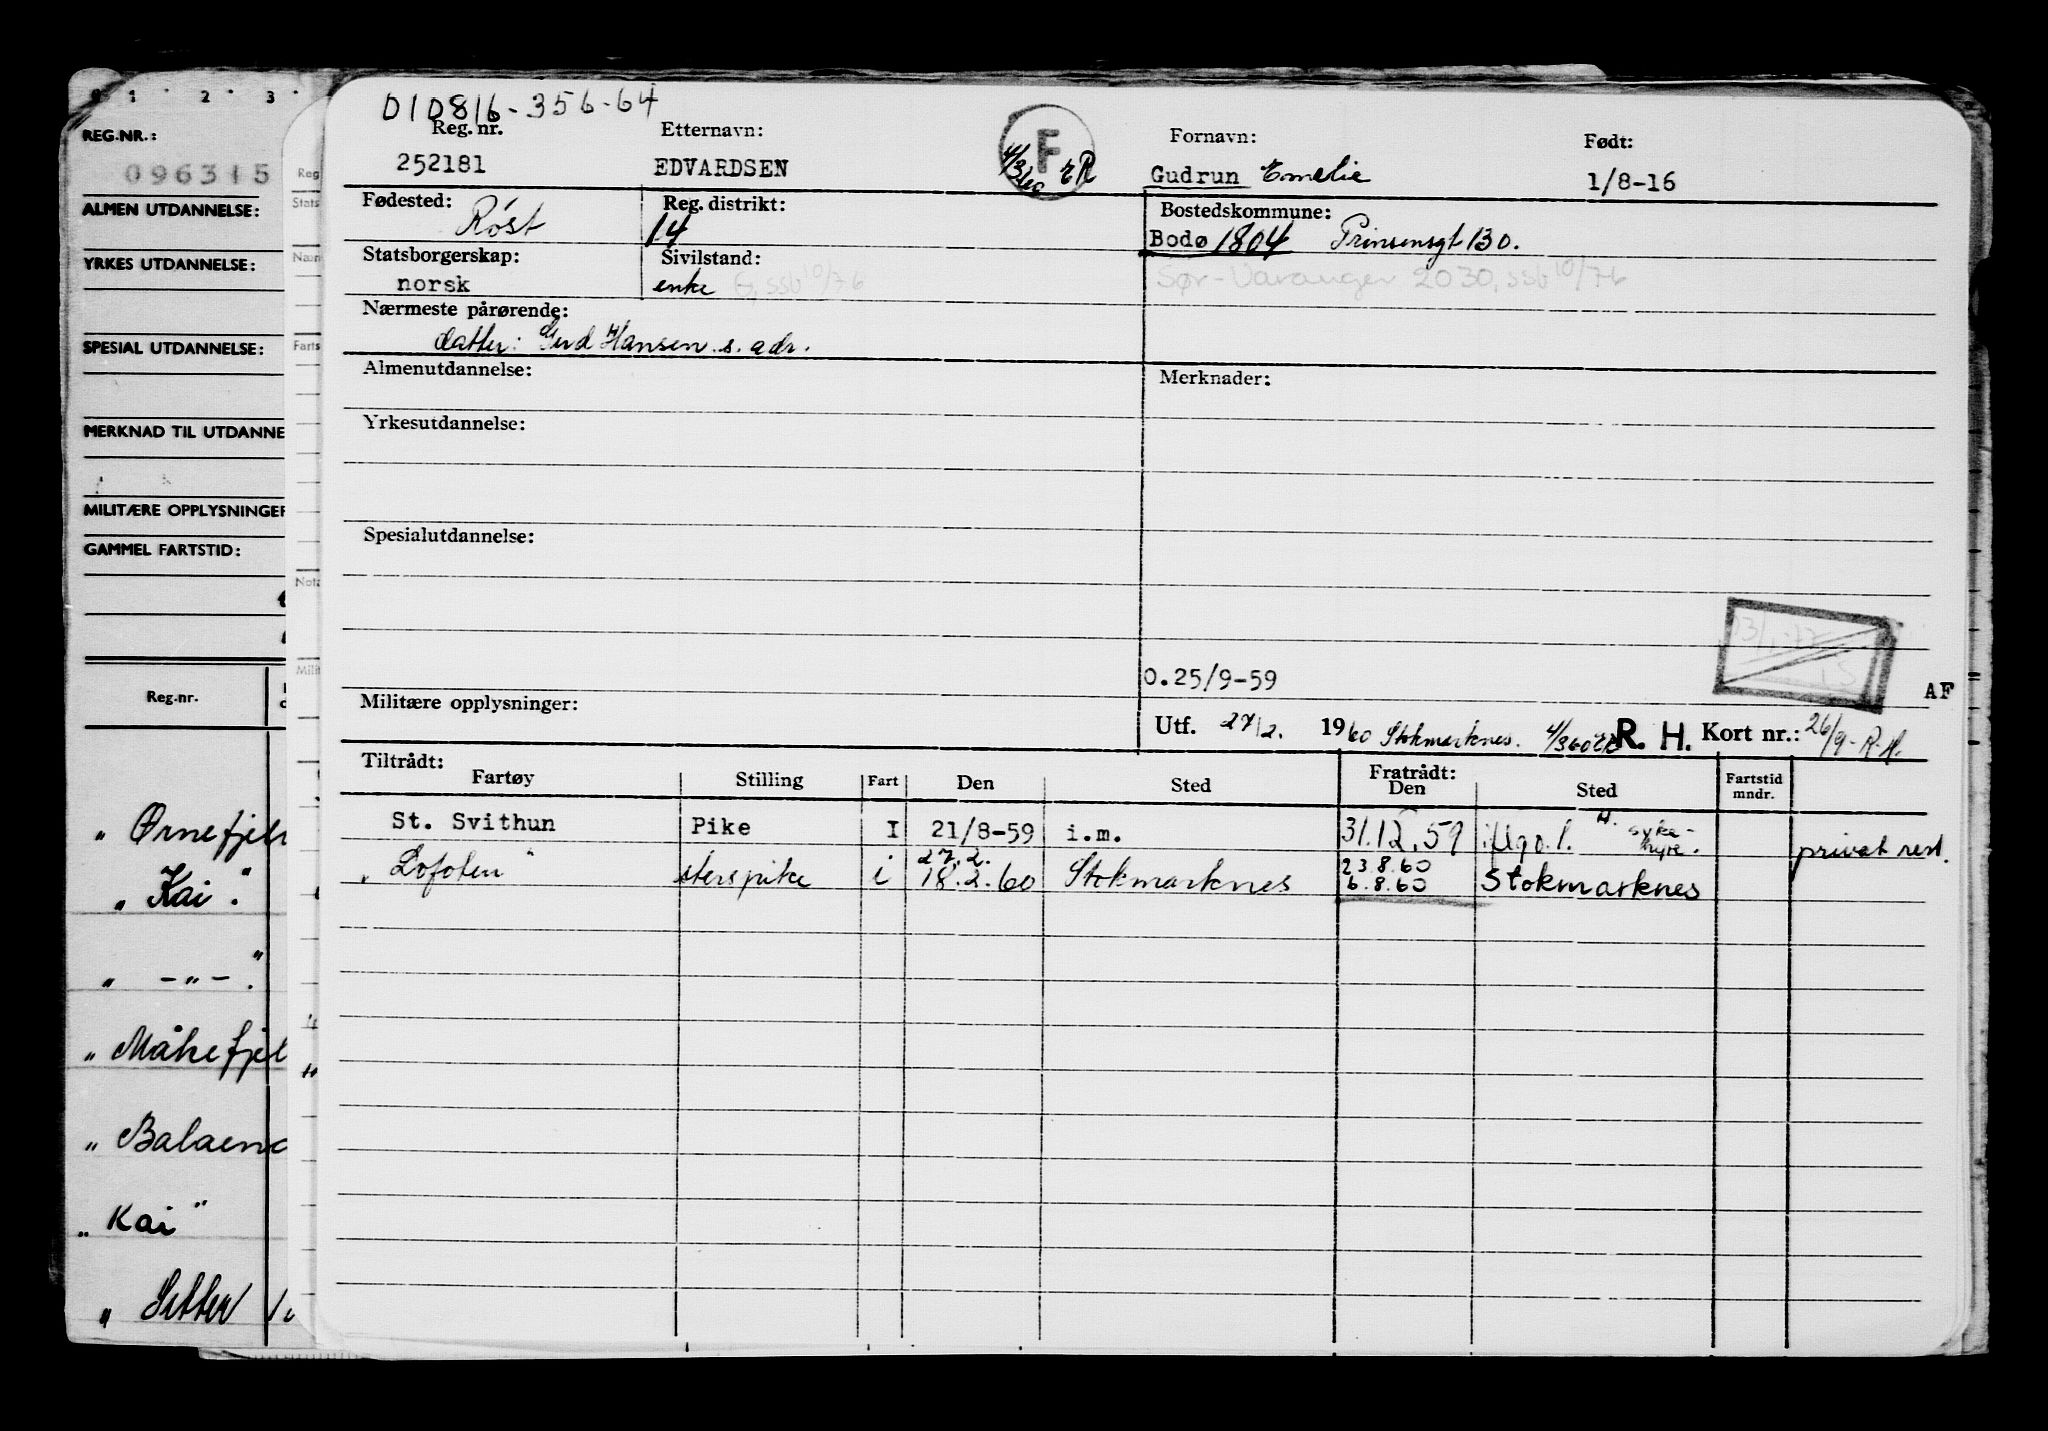 1 2 3
REG.NR.:
096315
ALMEN UTDANNELSE:
YRKES UTDANNELSE:
SPESIAL UTDANNELSE:
MERKNAD TIL UTDANNE
MILITÆRE OPPLYSNINGER
GAMMEL FARTSTID:
Reg.nr.
„ Ørnefjel
„ Kai".
„ -„- ".
„ Måkefjel
„ Balaena
„ Kai"
„ Sitter
Reg
Stats
Næm
Farts
Nota
Milit
010816-356-64
Reg. nr. Etternavn: Fornavn: Født:
252181 EDVARDSEN F 4/3 60 Gudrun Emelie 1/8-16
Fødested: Reg. distrikt: Bostedskommune:
Röst 14 Bodø 1804 Prinsensgt 130.
Statsborgerskap: Sivilstand:
norsk enke ssb 10/76 Sør-Varanger 2030, ssb 10/76
Nærmeste pårørende:
datter: Gerd Hansen s. adr.
Almenutdannelse: Merknader:
Yrkesutdannelse:
Spesialutdannelse:
0.25/9-59
AF
Militære opplysninger:
Utf. 27/2. 1960 Stokmarknes. 4/3 60 R. H. Kort nr.: 26/9-R.H.
Tiltrådt: Fratrådt:
Fartøy Stilling Fart Den Sted Den Sted Fartstid mndr.
St. Svithun Pike I 21/8-59 i.m. 31.12.59 privat rest.
27.2. 23.8.60
„Lofoten" i 18.2.60 Stokmarknes 6.8.60 Stokmarknes